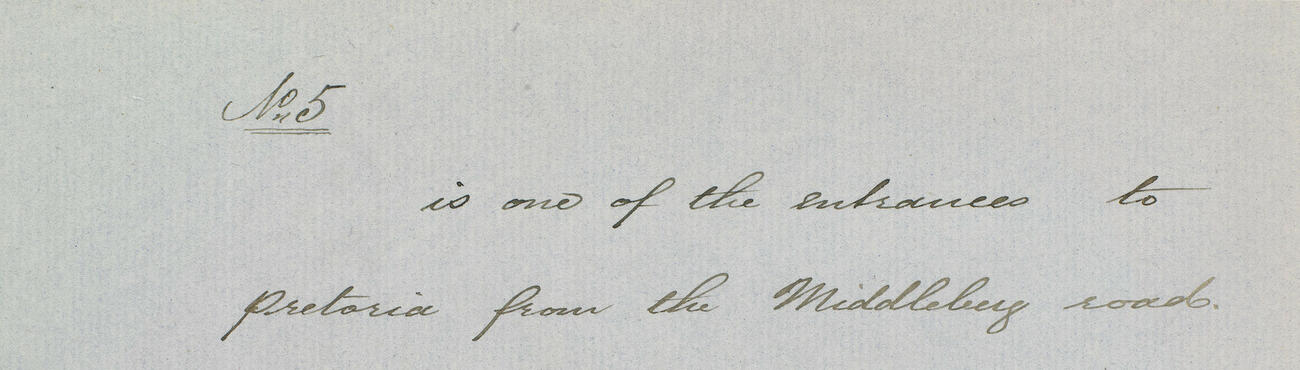 No 5
is one of the entrances to
Pretoria from the Middleburg road.